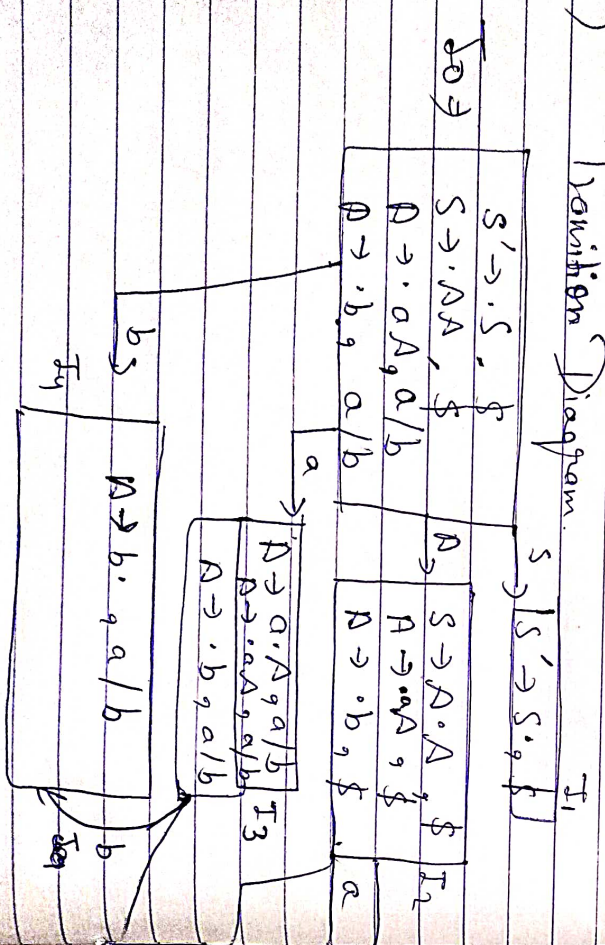 Transition Diagram.
I0 →
S' → .S, $
S → .AA, $
A → .aA, a/b
A → .b, a/b
S
S' → S., $
I1
A
S → A.A, $
A → .aA, $
A → .b, $
I2
a
a
A → a.A, a/b
A → .aA, a/b
A → .b, a/b
I3
b
I4
A → b., a/b
b